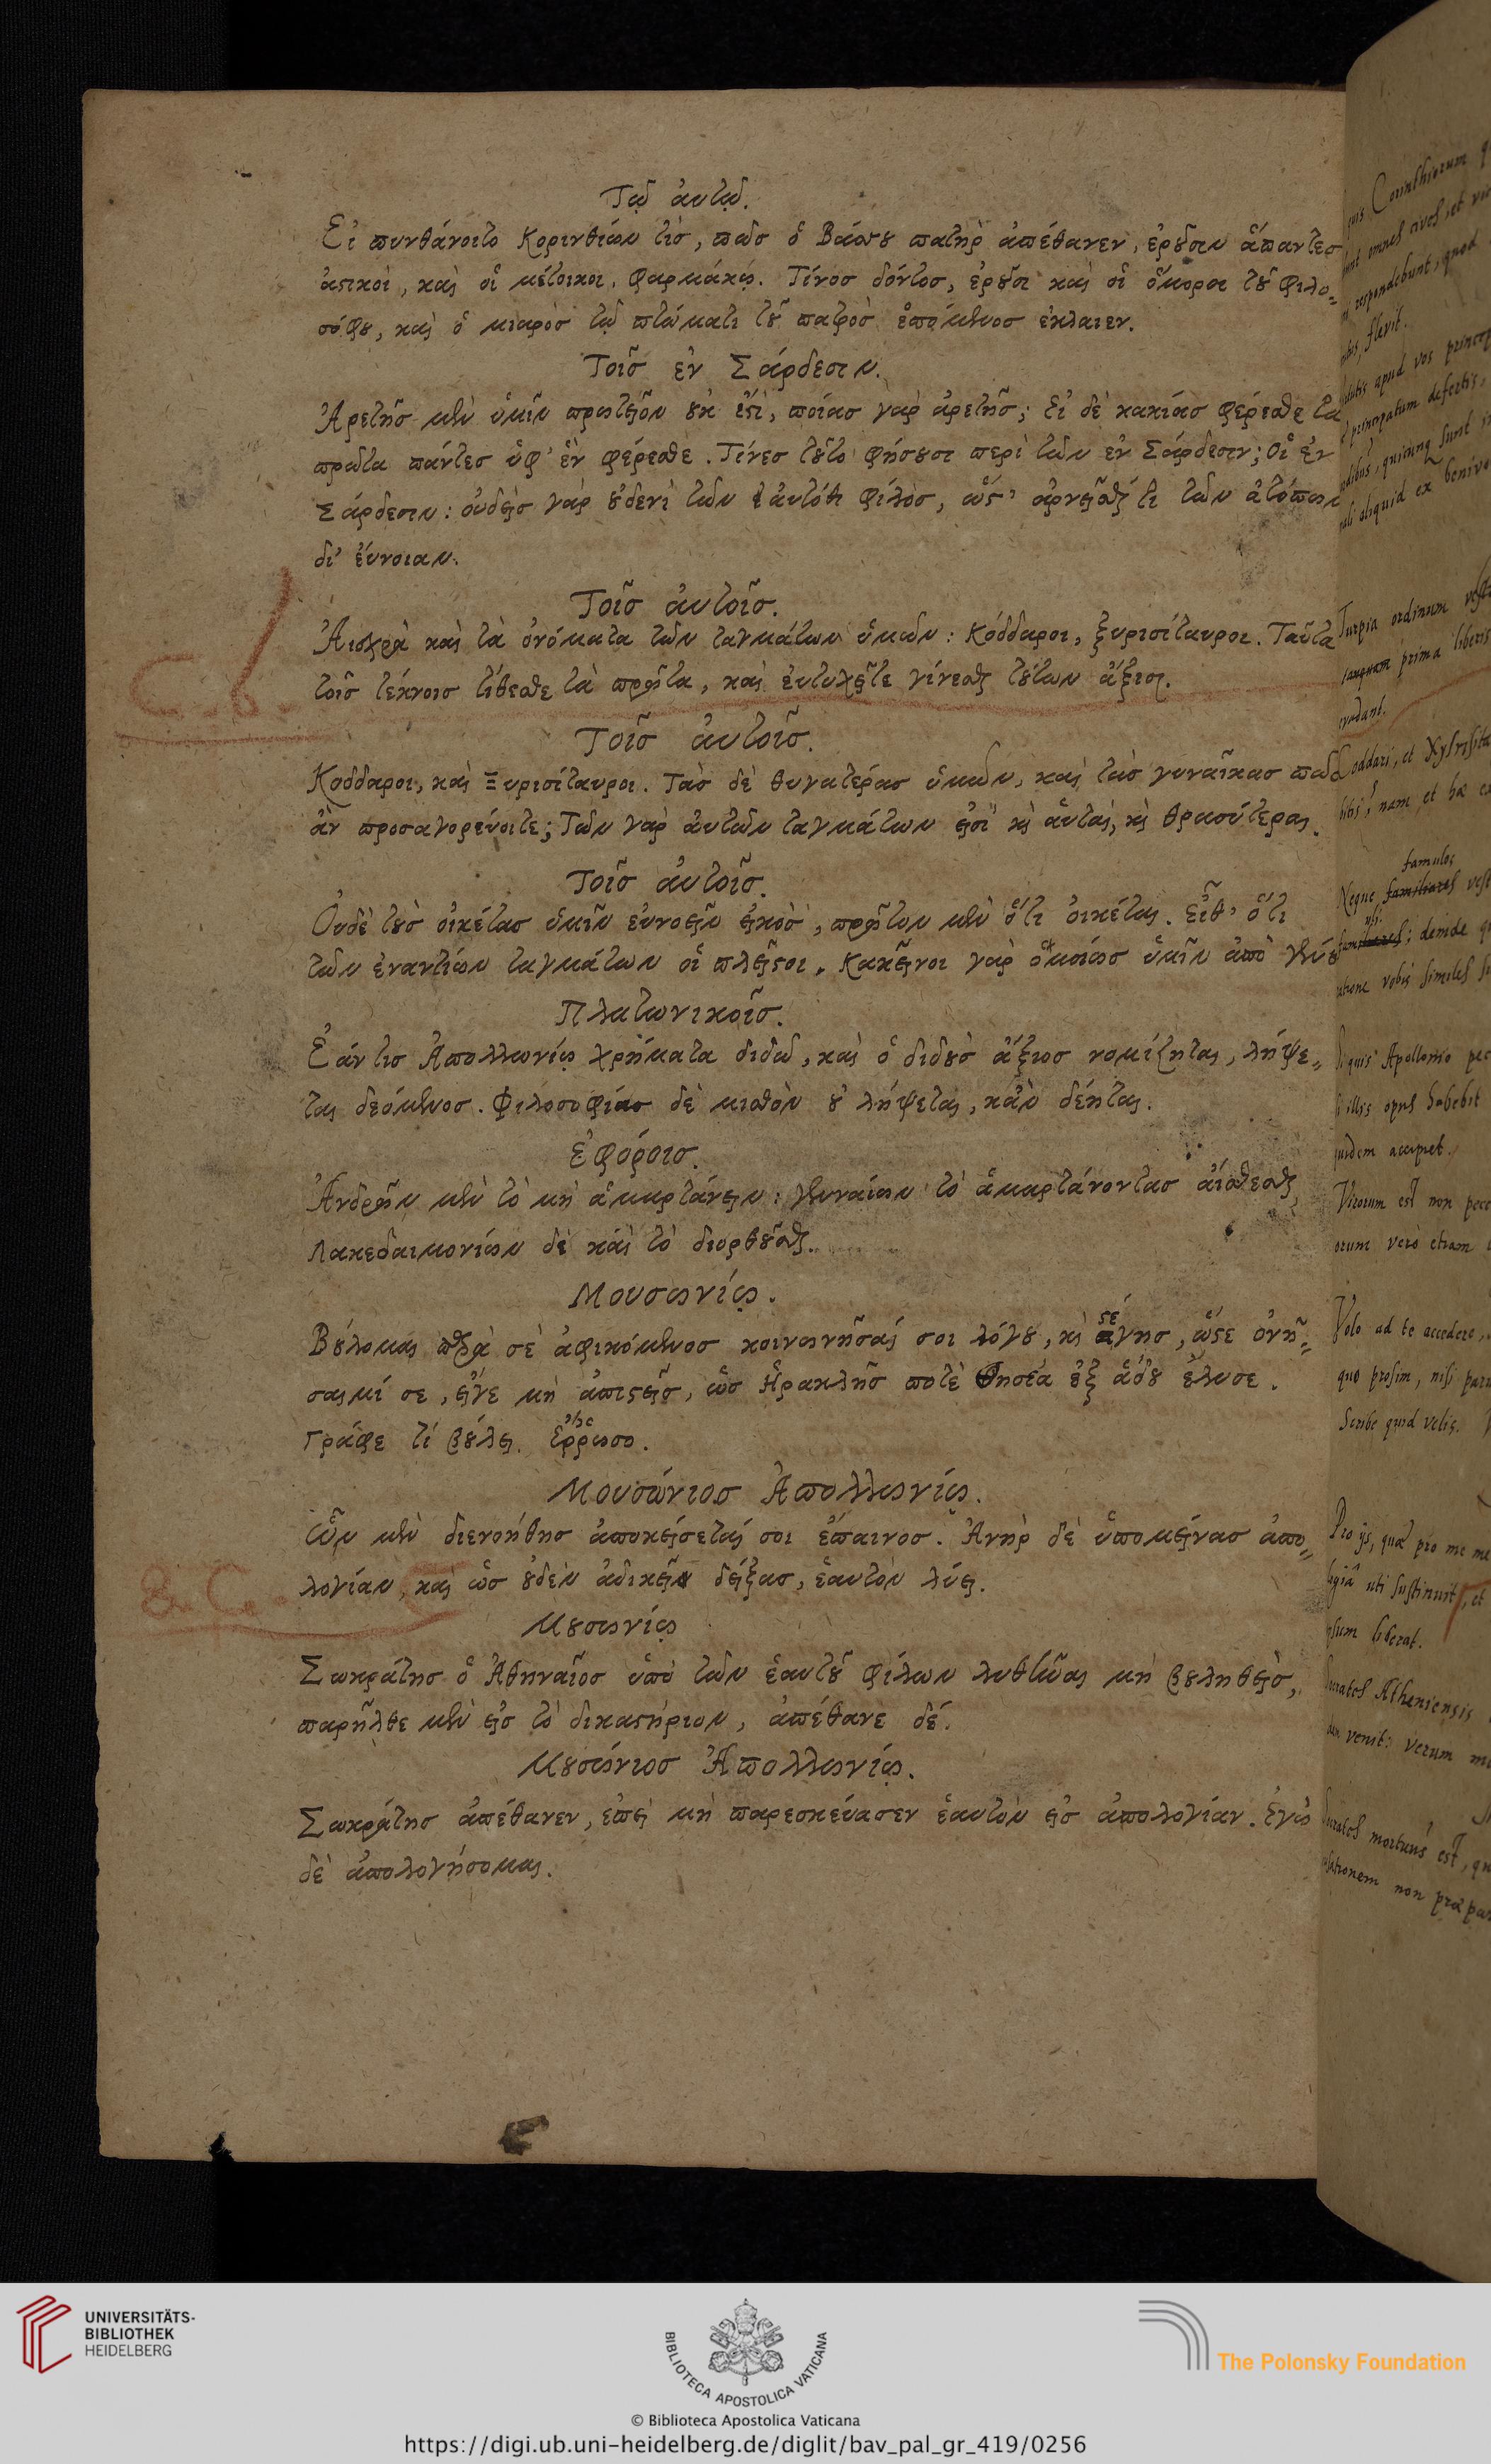 Τῷ ἀυτῷ.
Εἰ πυνθάνοιτο Κορινθίων τὶσ, πῶσ ὁ Βάσσου πατὴρ ἀπέθανεν, ἐροῦσιν ἅπαντεσ
ἀστικοὶ, καὶ οἱ μέτοικοι, φαρμάκῳ. Τίνοσ δόντοσ, ἐροῦσι καὶ οἱ ὅμοροι τοῦ φιλο-
σόφου, καὶ ὁ μιαρὸσ τῷ πτώματι τοῦ πατρὸσ ἑπόμενοσ ἐκλαιεν.
Τοῖσ ἐν Σάρδεσιν.
Ἀρετῆσ μὲν ὑμῖν πρωτεῖον οὐκ ἔστι, ποίασ γαρ ἀρετῆσ; Εἰ δὲ κακίασ φέρεσθε τὰ
πρῶτα πάντεσ ὑφ' ἓν φέρεσθε. Τίνεσ τοῦτο φήσουσι περὶ τῶν ἐν Σάρδεσιν; Οἱ ἐν
Σάρδεσιν: οὐδεὶσ γὰρ οὐδενὶ τῶν ἀυτόθι φίλοσ, ὥστ' ἀρνεῖσθαί τι τῶν ἀτόπων
δι' ἔυνοιαν.
Τοῖσ ἀυτοῖσ.
Ἀισχρὰ καὶ τὰ ὀνόματα τῶν ταγμάτων ὑμῶν: Κόδδαροι, ξυρισίταυροι. Ταῦτα
τοῖσ τέκνοισ τίθεσθε τὰ πρῶτα, καὶ ἐυτυχεῖτε γίνεσθαι τούτων ἄξιοι.
Τοῖσ ἀυτοῖσ.
Κοδδαροι, καὶ Ξυρισίταυροι. Τὰσ δὲ θυγατέρασ ὑμῶν, καὶ τὰσ γυναῖκασ πῶσ
ἂν προσαγορεύοιτε; Τῶν γὰρ ἀυτῶν ταγμάτων εἰσὶ καὶ ἁυταὶ, καὶ θρασύτεραι.
Τοῖσ ἀυτοῖσ.
Ὀυδὲ τοὺσ οἰκέτασ ὑμῖν ἐυνοεῖν εἰκὸσ, πρῶτον μὲν ὅτι ὀικέται. Εἶθ' ὅτι
τῶν ἐναντίων ταγμάτων οἱ πλεῖστοι. Κακεῖνοι γὰρ ὁμοίωσ ὑμῖν ἀπὸ γένουσ
Πλατωνικοῖσ.
Ἐάν τισ Ἀπολλωνίῳ χρήματα διδῷ, καὶ ὁ διδοὺσ ἄξιοσ νομίζηται, λήψε-
ται δεόμενοσ. Φιλοσοφίασ δὲ μισθὸν οὐ λήψεται, κἂν δέηται.
Ἐφόροισ.
Ἀνδρῶν μὲν τὸ μὴ ἁμαρτάνειν: γενναίων τὸ ἁμαρτάνοντασ ἀίσθεσθαι,
Λακεδαιμονίων δὲ καὶ τὸ διορθοῦσθαι.
Μουσωνίῳ.
Βούλομαι παρὰ σὲ ἀφικόμενοσ κοινωνῆσαί σοι λόγου, καὶ στέγησ, ὥστε ὀνῆ-
σαιμί σε, εἴγε μὴ ἀπιστεῖσ, ὡσ Ἡρακλῆσ ποτὲ Θησέα ἐξ ἅδου ἔλυσε.
Γράφε τί βούλει. ἔρρωσο.
Μουσώνιοσ Ἀπολλωνίῳ.
Ὧν μὲν διενοήθησ ἀποκείσεταί σοι ἔπαινοσ. Ἀνὴρ δὲ ὑπομείνασ ἀπο-
λογίαν, καὶ ὡσ οὐδὲν ἀδικεῖ δείξασ, ἑαυτὸν λύει.
Μουσωνίῳ
Σωκράτησ ὁ Ἀθηναῖοσ ὑπὸ τῶν ἑαυτοῦ φίλων λυθῆναι μὴ βουληθεὶσ,
παρῆλθε μὲν εἰσ τὸ δικαστήριον, ἀπέθανε δέ.
Μουσώνιοσ Ἀπολλωνίῳ.
Σωκράτησ ἀπέθανεν, ἐπεὶ μὴ παρεσκεύασεν ἑαυτὸν εἰσ ἀπολογίαν. Ἐγὼ
δὲ ἀπολογήσομαι.
Corinthiorum
omnes cives, et
respondebunt, quod
flevit.
apud vos
principatum defertis,
sunt
aliquid ex
Turpia ordinum
tanquam prima liberis
evadant.
Coddari, et Xyrisita
nam et hae
famulos
Neque familiares
deinde
vobis similes
Si quis Apollonio
si illis opus habebit
quidem accipiet.
Virorum est non
vero etiam
Volo ad te accedere,
quo prosim, nisi
Scribe quid velis.
Pro ijs, quae pro me
uti sustinuit, et
liberat.
Socrates Atheniensis
venit: verum
Socrates mortuus est,
non
UNIVERSITÄTS-
BIBLIOTHEK
HEIDELBERG
BIBLIOTECA APOSTOLICA VATICANA
The Polonsky Foundation
© Biblioteca Apostolica Vaticana
https://digi.ub.uni-heidelberg.de/diglit/bav_pal_gr_419/0256